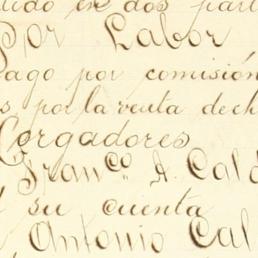 dido en dos part
Por Labor
Pago por comisión
s por la venta de ch
Cargadores
Franco A. Cald
su cuenta
Antonio Cal